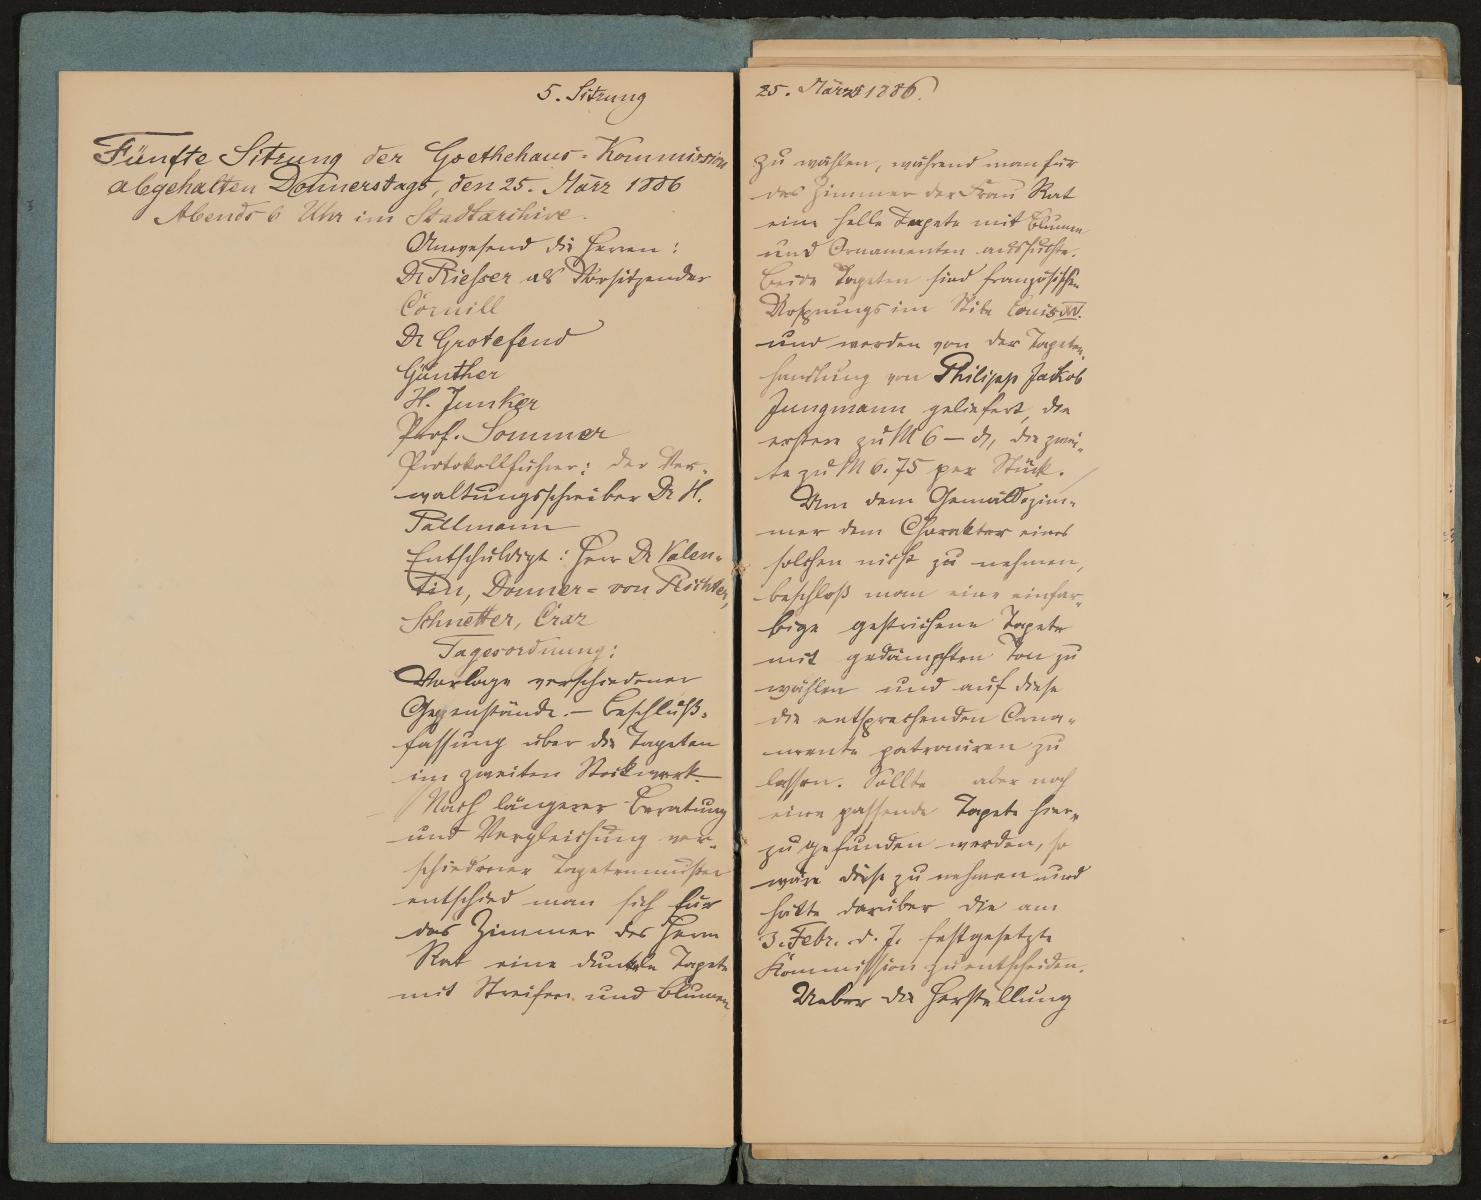 5. Sitzung
Fünfte Sitzung der Goethehaus-Kommission
abgehalten Donnerstags, den 25. März 1886
Abends 6 Uhr im Stadtarchive.
Anwesend die Herren:
Dr Riesser als Vorsitzender
Cornill
Dr Grotefend
Günther
H. Junker
Prof. Sommer
Protokollführer: der Ver-
waltungsschreiber Dr H.
Pallmann
Entschuldigt: Herr Dr Valen-
tin, Donner-von Richter,
Schnetter,
Tagesordnung:
Vorlage verschiedener
Gegenstände. - Beschluß-
fassung über die Tapeten
im zweiten Stockwerk -
Nach längerer Beratung
und Vergleichung ver-
schiedener Tapetenmuster
entschied man sich für
das Zimmer des Herrn
Rat eine dunkle Tapete
mit Streifen und Blumen
25. März 1886.
zu wählen, während man für
das Zimmer der Frau Rat
eine helle Tapete mit Blumen
und Ornamenten aussuchte.
Beide Tapeten sind französischen
Ursprungs im Stile Louis XV.
und werden von der Tapeten-
handlung von Philipp Jakob
Jungmann geliefert, die
erstere zu M 6 – die zwei-
te zu M 6.75 per Stück.
Um dem Gemäldezim-
mer den Charakter eines
solchen nicht zu nehmen,
beschloß man eine einfar-
bige gestrichene Tapete
mit gedämpften Ton zu
wählen und auf diese
die entsprechenden Orna-
mente patroniren zu
lassen. Sollte aber noch
eine passende Tapete hier-
zu gefunden werden, so
wäre diese zu nehmen und
hätte darüber die am
3. Febr. d. J. festgesetzte
Kommission zu entscheiden.
Ueber die Herstellung